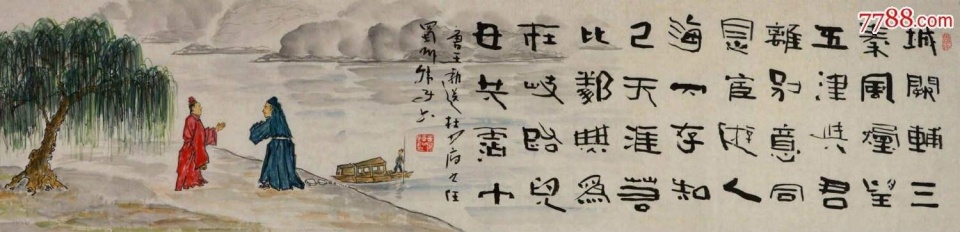 城闕輔三
秦風煙望
五津與君
離別意同
是宦遊人
海內存知
己天涯若
比鄰無爲
在岐路兒
女共霑巾
唐王勃送杜少府之任
蜀州
7788.com